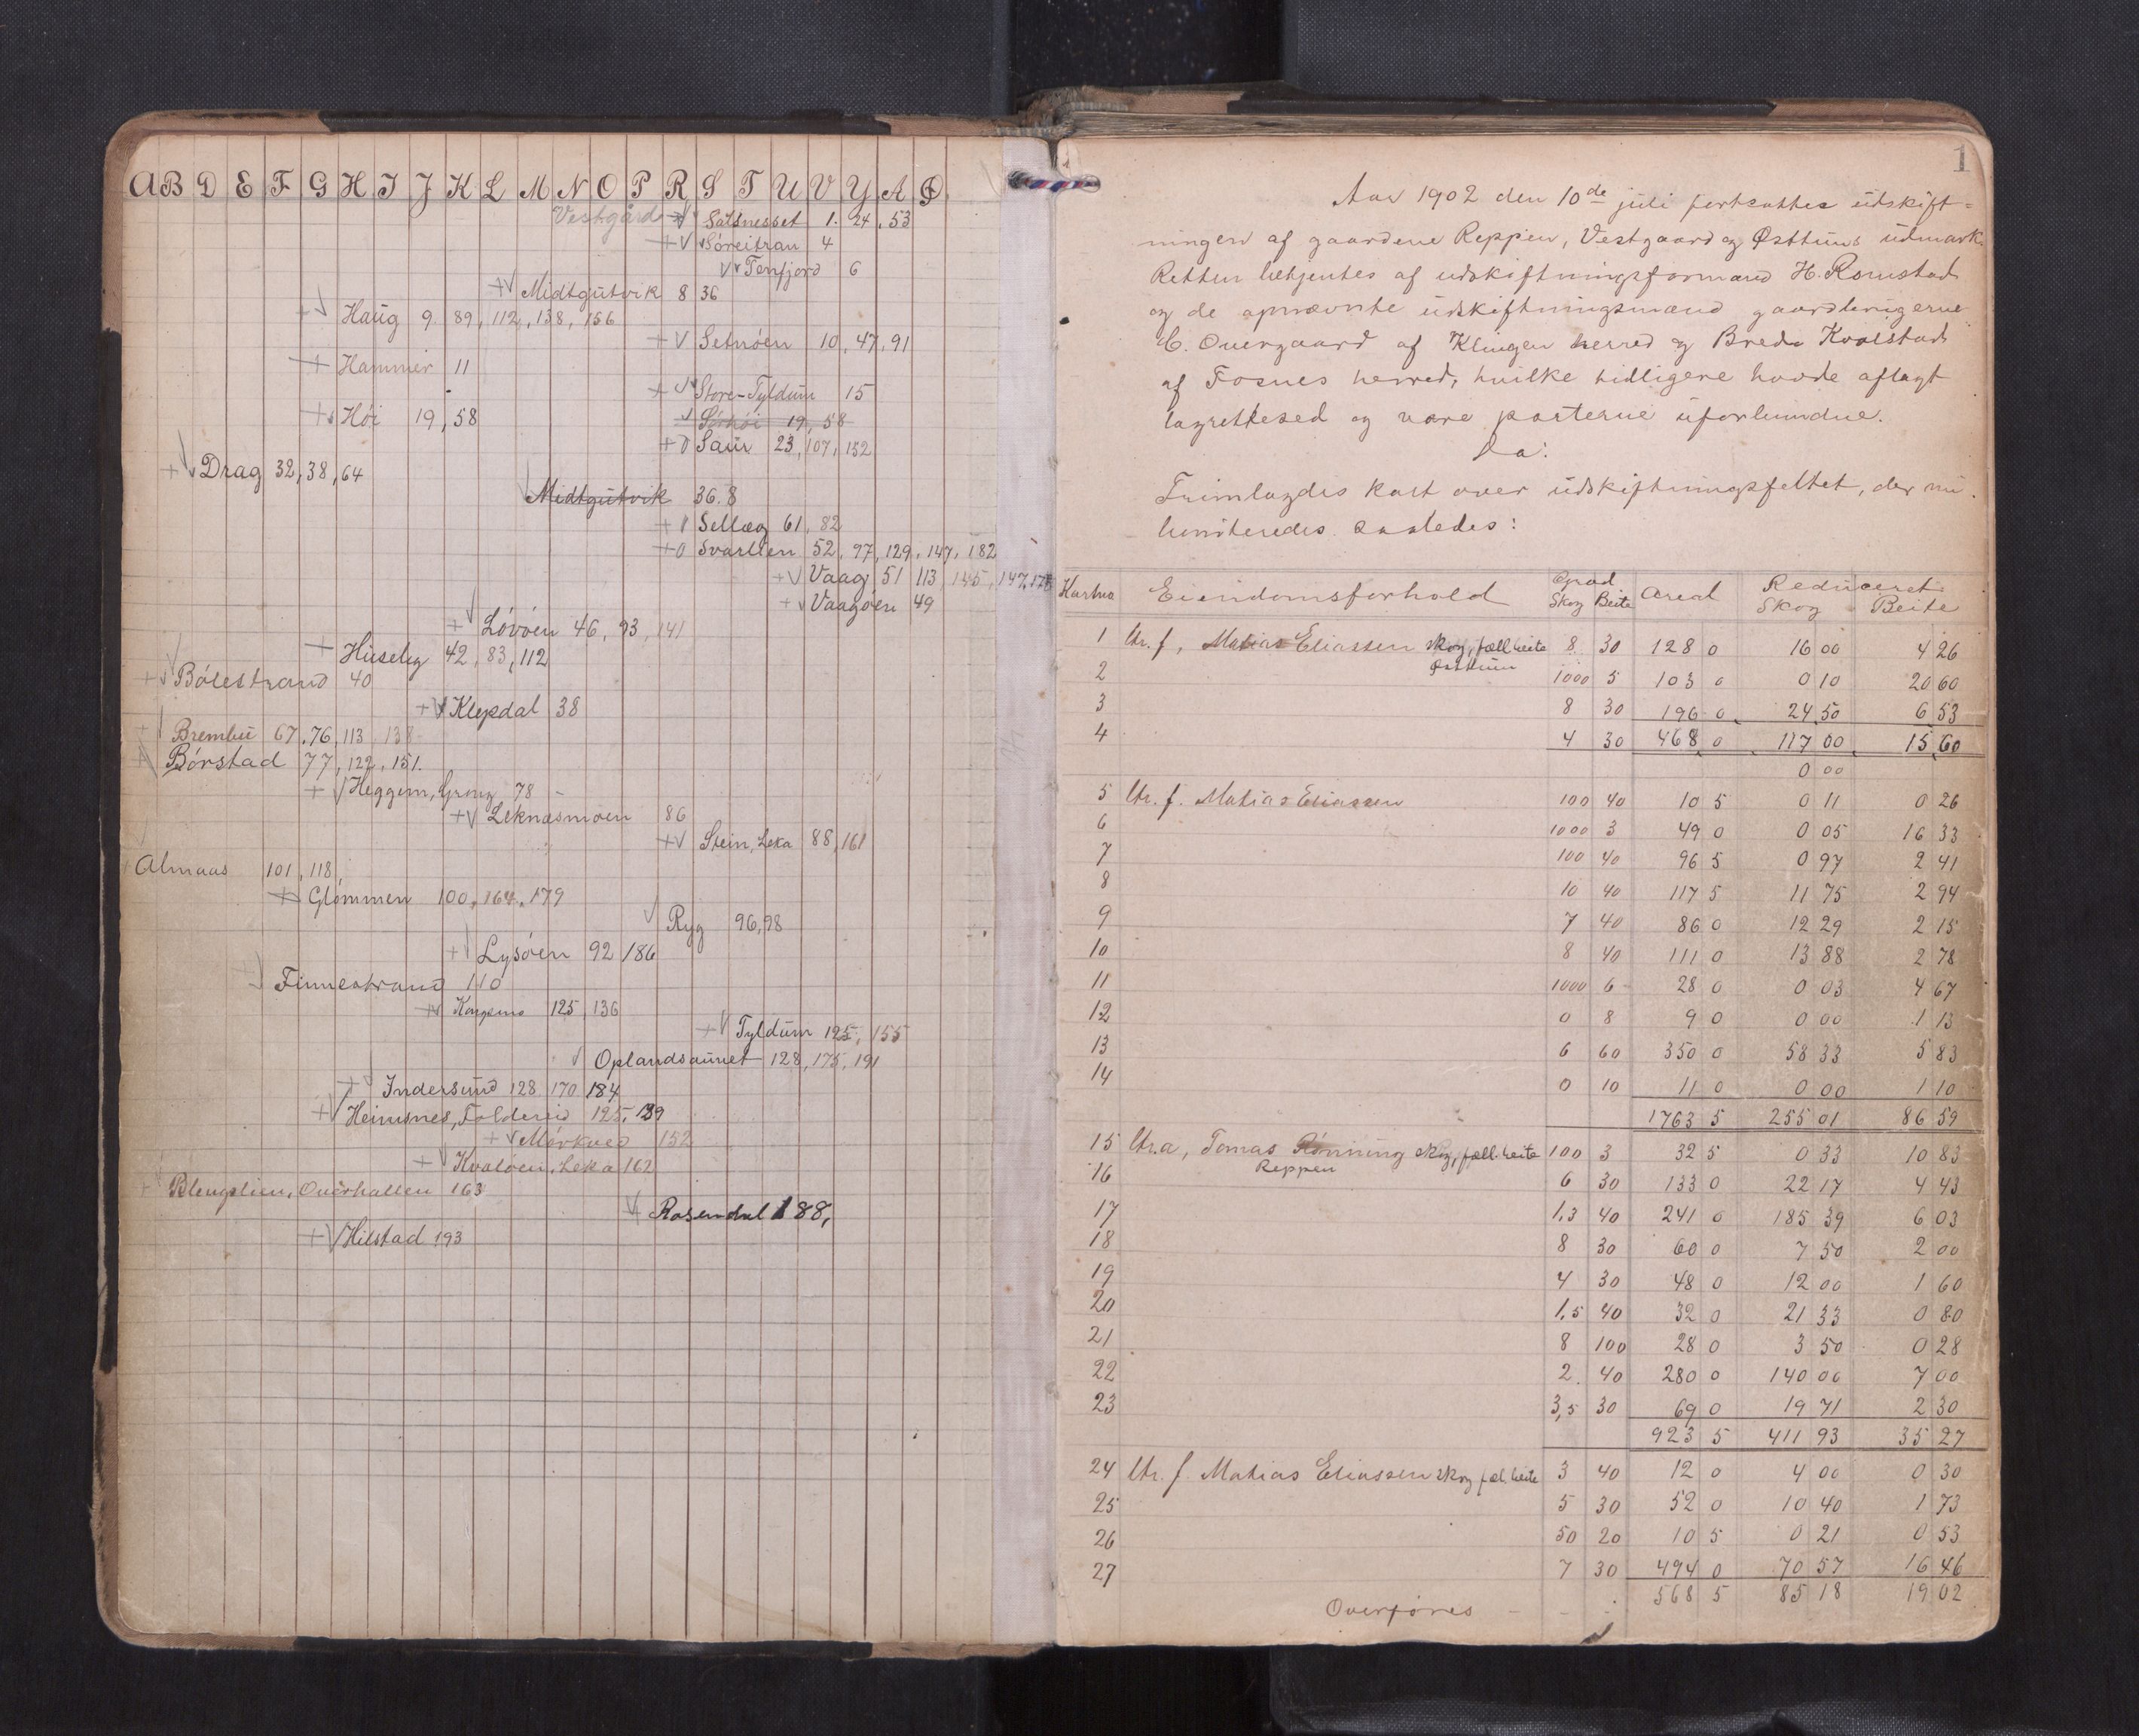 A B D E F G H I J K L M N O P R S T U V Y A Ø
Vestgård Saltnesset 1. 24, 53
Söreitran 4
Tenfjord 6
Midtgutvik 8 36
Haug 9. 89, 112, 138, 156
Setnöen 10, 47, 91
Hammer 11
Store-Tyldum 15
Höi 19, 58
19, 58
Saur 23, 107, 152
Drag 32, 38, 64
Midtgutvik 36. 8
Sellæg 61, 82
Svarlien 52, 97, 129, 147, 182
Vaag 51 113, 145, 147, 178
Vaagöen 49
Lövöen 46, 93, 141
Huseby 42, 83, 112
Bölestrand 40
Klepdal 38
Brembu 67, 76, 113 138
Börstad 77, 122, 151.
Heggem, Grong 78
Leknæsmoen 86
Stein, Leka 88, 161
Almaas 101, 118,
Glömmen 100, 164, 179
Ryg 96, 98
Lysöen 92 186
Finnestrand 110
Kongsmo 125, 136
Tyldum 125, 155
Oplandsaunet 128, 175, 191
Indersund 128 170 184
Heimsnes, Foldereid 125, 139
Mörkved 152
Kvalöen, Leka 162
Blengslien, Overhallen 163
Rosendal 188,
Hilstad 193
1
Aar 1902 den 10de juli fortsattes udskift-
ningen af gaardene Reppen, Vestgaard og Østtuns udmark.
Retten betjentes af udskiftningsformand H. Romstad
og de opnævnte udskiftningsmænd gaardbrugerne
C. Overgaard af Klingen herred og Brede Kvalstad
af Fosnes herred, hvilke tidligere havde aflagt
lagrettesed og vare parterne uforbundne.
Da:
Fremlagdes kart over udskiftningsfeltet, der nu
boniteredes saaledes:
Kartno Eiendomsforhold Grad Skog Beite Areal Reduceret Skog Beite
1 Br. f, Matias Eliassen skog, fæll. beite 8 30 128 0 16 00 4 26
2 Østtun 1000 5 103 0 0 10 20 60
3 8 30 196 0 24 50 6 53
4 4 30 468 0 117 00 15 60
0 00
5 Br. f. Matias Eliassen 100 40 10 5 0 11 0 26
6 1000 3 49 0 0 05 16 33
7 100 40 96 5 0 97 2 41
8 10 40 117 5 11 75 2 94
9 7 40 86 0 12 29 2 15
10 8 40 111 0 13 88 2 78
11 1000 6 28 0 0 03 4 67
12 0 8 9 0 0 00 1 13
13 6 60 350 0 58 33 5 83
14 0 10 11 0 0 00 1 10
1763 5 255 01 86 59
15 Br. a, Tomas Rönning skog, fæll. beite 100 3 32 5 0 33 10 83
16 Reppen 6 30 133 0 22 17 4 43
17 1,3 40 241 0 185 39 6 03
18 8 30 60 0 7 50 2 00
19 4 30 48 0 12 00 1 60
20 1,5 40 32 0 21 33 0 80
21 8 100 28 0 3 50 0 28
22 2 40 280 0 140 00 7 00
23 3,5 30 69 0 19 71 2 30
923 5 411 93 35 27
24 Br. f. Matias Eliassen skog fæl. beite 3 40 12 0 4 00 0 30
25 5 30 52 0 10 40 1 73
26 50 20 10 5 0 21 0 53
27 7 30 494 0 70 57 16 46
568 5 85 18 19 02
Overföres - - -